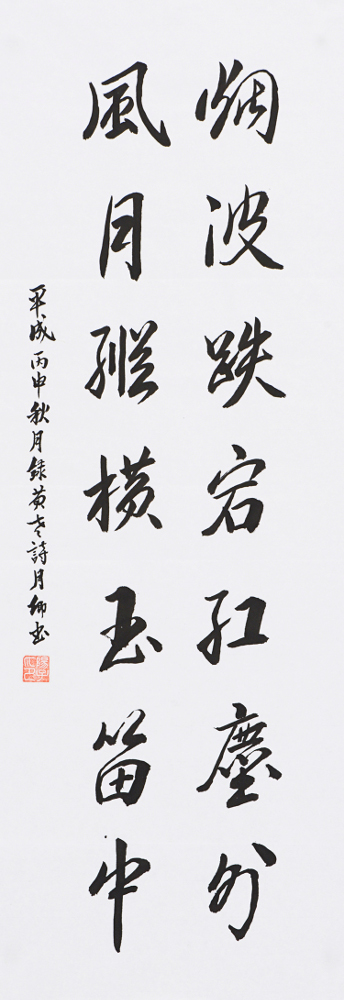 烟波跌宕紅塵外
風月縱橫玉笛中
平成丙申秋月録黄老詩月卿書